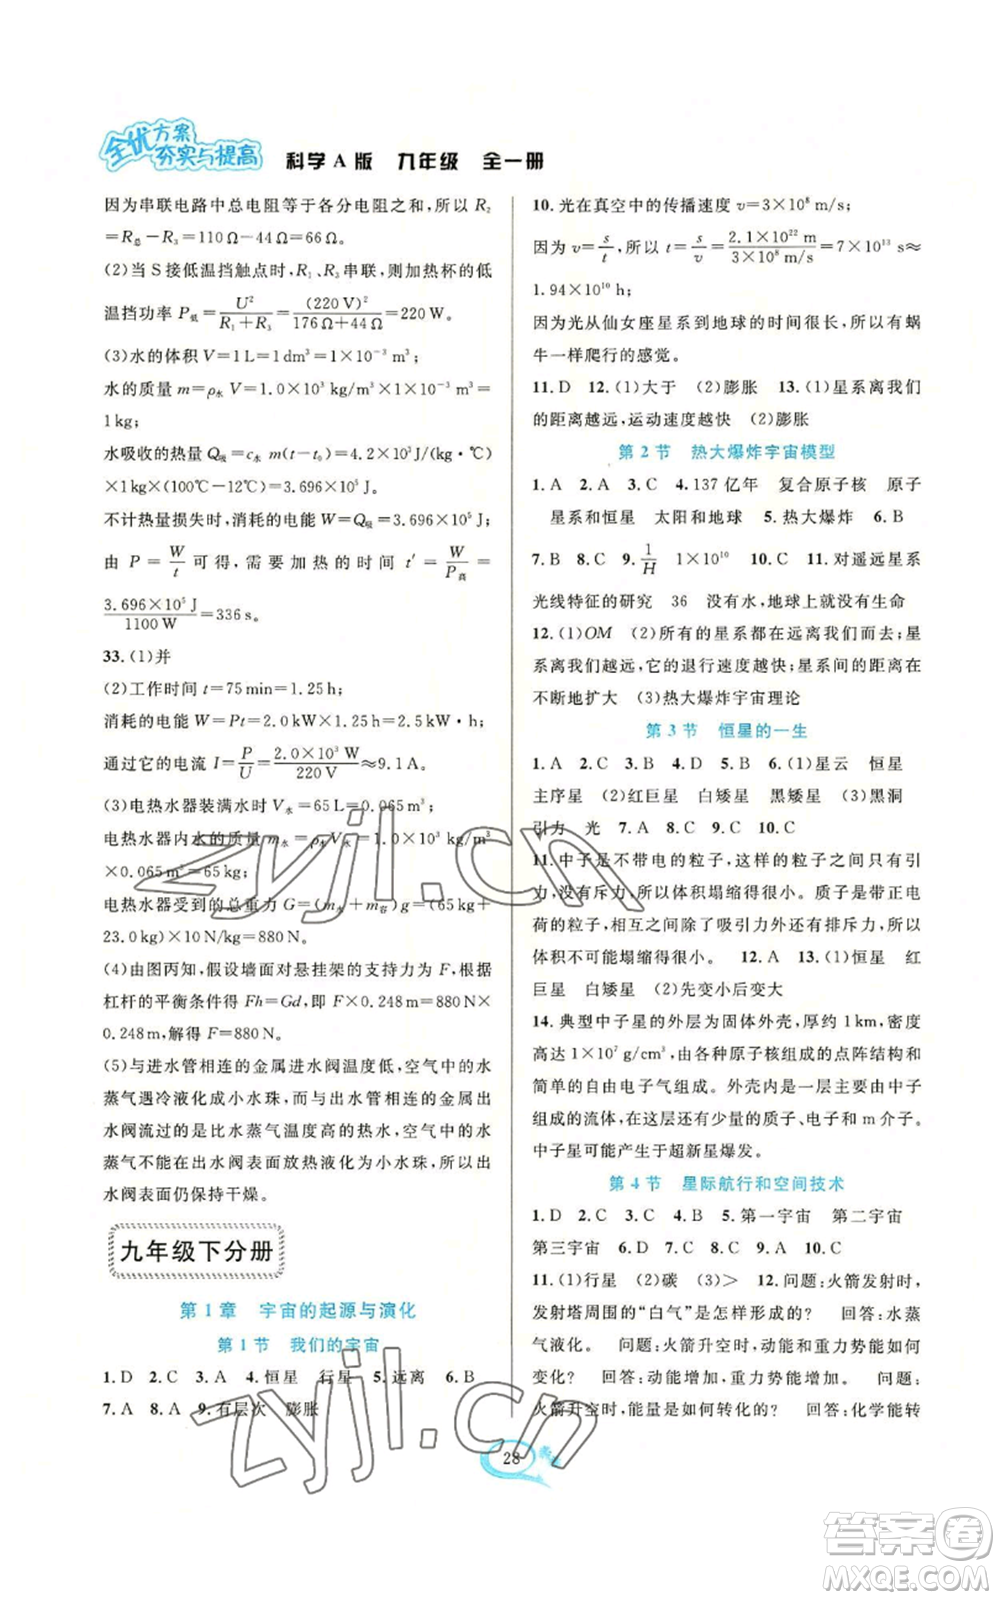 全优方案
夯实与提高
科学 A 版　九年级　全一册
因为串联电路中总电阻等于各分电阻之和,所以 R₂
=R总-R₃=110 Ω-44 Ω=66 Ω。
(2)当 S 接低温挡触点时,R₁、R₃串联,则加热杯的低
温挡功率 P低=U²/(R₁+R₃)=(220 V)²/(176 Ω+44 Ω)=220 W。
(3)水的体积 V=1 L=1 dm³=1×10⁻³ m³;
水的质量 m=ρ水 V=1.0×10³ kg/m³×1×10⁻³ m³=
1 kg;
水吸收的热量 Q吸=c水 m(t-t₀)=4.2×10³ J/(kg·℃)
×1 kg×(100℃-12℃)=3.696×10⁵ J;
不计热量损失时,消耗的电能 W=Q吸=3.696×10⁵ J,
由 P=W/t 可得,需要加热的时间 t′=W/P高=
3.696×10⁵ J/1100 W=336 s。
33.(1)并
(2)工作时间 t=75 min=1.25 h;
消耗的电能 W=Pt=2.0 kW×1.25 h=2.5 kW·h;
通过它的电流 I=P/U=2.0×10³ W/220 V≈9.1 A。
(3)电热水器装满水时 V水=65 L=0.065 m³;
电热水器内水的质量 m水=ρ水V水=1.0×10³ kg/m³
×0.065 m³=65 kg;
电热水器受到的总重力 G=(m水+m容)g=(65 kg+
23.0 kg)×10 N/kg=880 N。
(4)由图丙知,假设墙面对悬挂架的支持力为 F,根据
杠杆的平衡条件得 Fh=Gd,即 F×0.248 m=880 N×
0.248 m,解得 F=880 N。
(5)与进水管相连的金属进水阀温度低,空气中的水
蒸气遇冷液化成小水珠,而与出水管相连的金属出
水阀流过的是比水蒸气温度高的热水,空气中的水
蒸气不能在出水阀表面放热液化为小水珠,所以出
水阀表面仍保持干燥。
九年级下分册
第 1 章　宇宙的起源与演化
第 1 节　我们的宇宙
1.D　2.C　3.A　4.恒星　行星　5.远离　6.B
7.A　8.A　9.有层次　膨胀
10.光在真空中的传播速度 v=3×10⁸ m/s;
因为 v=s/t,所以 t=s/v=2.1×10²² m/3×10⁸ m/s=7×10¹³ s≈
1.94×10¹⁰ h;
因为光从仙女座星系到地球的时间很长,所以有蜗
牛一样爬行的感觉。
11.D　12.(1)大于　(2)膨胀　13.(1)星系离我们
的距离越远,运动速度越快　(2)膨胀
第 2 节　热大爆炸宇宙模型
1.A　2.A　3.C　4.137 亿年　复合原子核　原子
星系和恒星　太阳和地球　5.热大爆炸　6.B
7.B　8.C　9.1/H　1×10¹⁰　10.C　11.对遥远星系
光线特征的研究　36　没有水,地球上就没有生命
12.(1)OM　(2)所有的星系都在远离我们而去;星系
离我们越远,它的退行速度越快;星系间的距离在
不断地扩大　(3)热大爆炸宇宙理论
第 3 节　恒星的一生
1.A　2.C　3.B　4.D　5.B　6.(1)星云　恒星
主序星　(2)红巨星　白矮星　黑矮星　(3)黑洞
引力　光　7.A　8.C　9.C　10.C
11.中子是不带电的粒子,这样的粒子之间只有引
力,没有斥力,所以体积塌缩得很小。质子是带正电
荷的粒子,它们之间除了吸引力外还有排斥力,所以
体积不可能塌缩得很小。　12.A　13.(1)恒星　红
巨星　白矮星　(2)先变小后变大
14.典型中子星的外层为固体外壳,厚约 1 km,密度
高达 1×10⁷ g/cm³,由各种原子核组成的点阵结构和
简单的自由电子气组成。外壳内是一层主要由中子
组成的流体,在这层还有少量的质子、电子和 m 介子。
中子星可能产生于超新星爆发。
第 4 节　星际航行和空间技术
1.D　2.C　3.C　4.B　5.第一宇宙　第二宇宙
第三宇宙　6.D　7.B　8.D　9.C　10.B
11.(1)行星　(2)碳　(3)>　12.问题:火箭发射时,
发射塔周围的“白气”是怎样形成的?　回答:水蒸
气液化。　问题:火箭升空时,动能和重力势能如何
变化?　回答:动能增加,重力势能增加。　问题:
火箭升空时,能量是如何转化的?　回答:化学能转
28
zyjl.cn
zyjl.cn
答案圈
MXQE.COM